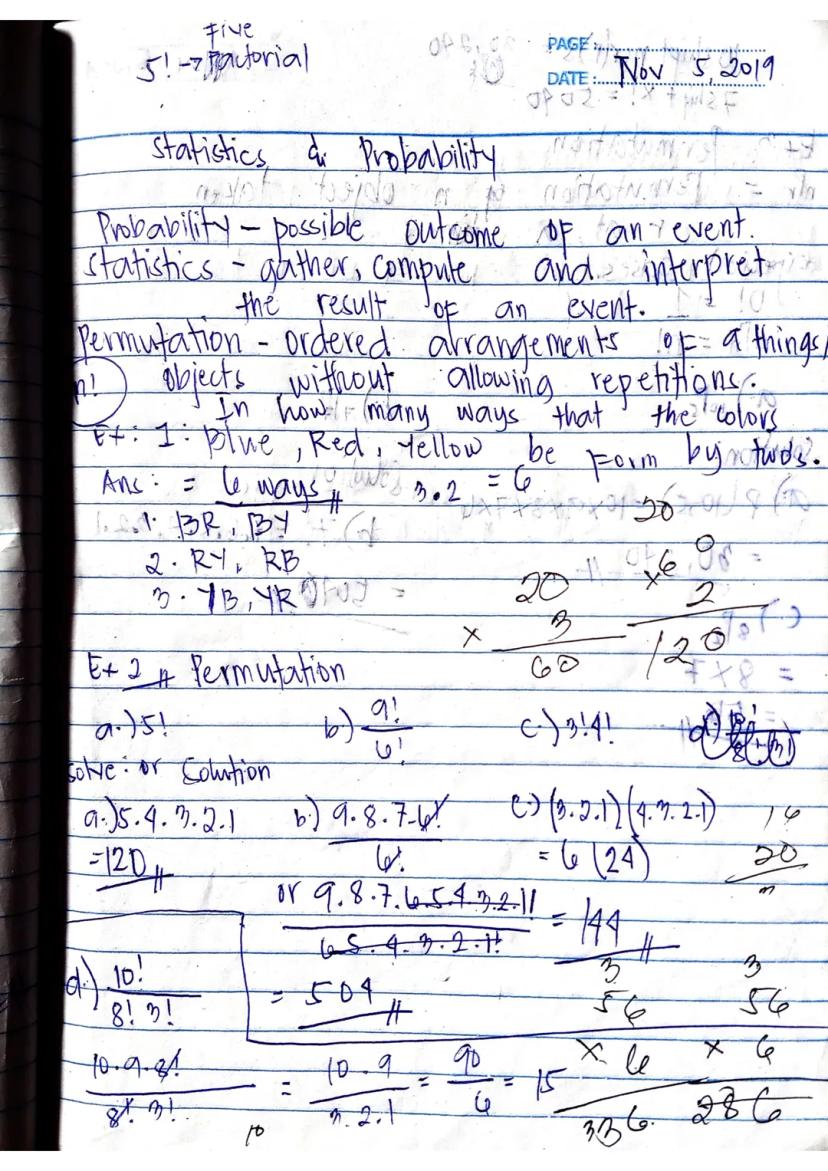 Five
5! → Factorial
PAGE:
DATE: Nov 5, 2019
Statistics & Probability
Probability - possible outcome of an event.
Statistics - gather, compute and interpret
the result of an event.
Permutation - ordered arrangements of a things/
n! objects without allowing repetitions.
In how many ways that the colors
Ex: 1: Blue, Red, Yellow be Form by twos.
Ans: = 6 ways 3.2 = 6
1. BR, BY
2. RY, RB
3. YB, YR
20
0
x 6
2
120
20
x 3
60
Ex 2 Permutation
a.) 5! b.) 9!/6! c.) 3!4!
Solve: or Solution
a.) 5.4.3.2.1 b.) 9.8.7.6!/6! c.) (3.2.1)(4.3.2.1)
= 120 = 6 (24)
or 9.8.7.6.5.4.3.2.1!/6.5.4.3.2.1! = 144
= 504
20
d.) 10!/8! 3!
10.9.8!/8! 3! = 10.9/3.2.1 = 90/6 = 15
10
3
56
x 6
336.
3
56
x 6
286